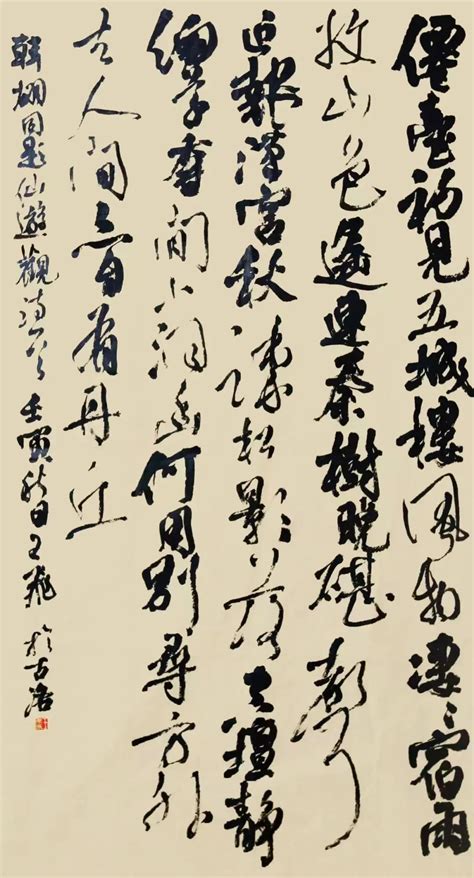 僊臺初見五城樓風物凄〻宿雨
收山色遥連秦樹晚碪聲
近報漢宮秋疎松影落空壇靜
細草香閒小洞幽何用別尋方外
去人間亦自有丹丘
韓翃同題仙遊觀詩 壬寅秋日王飛於古